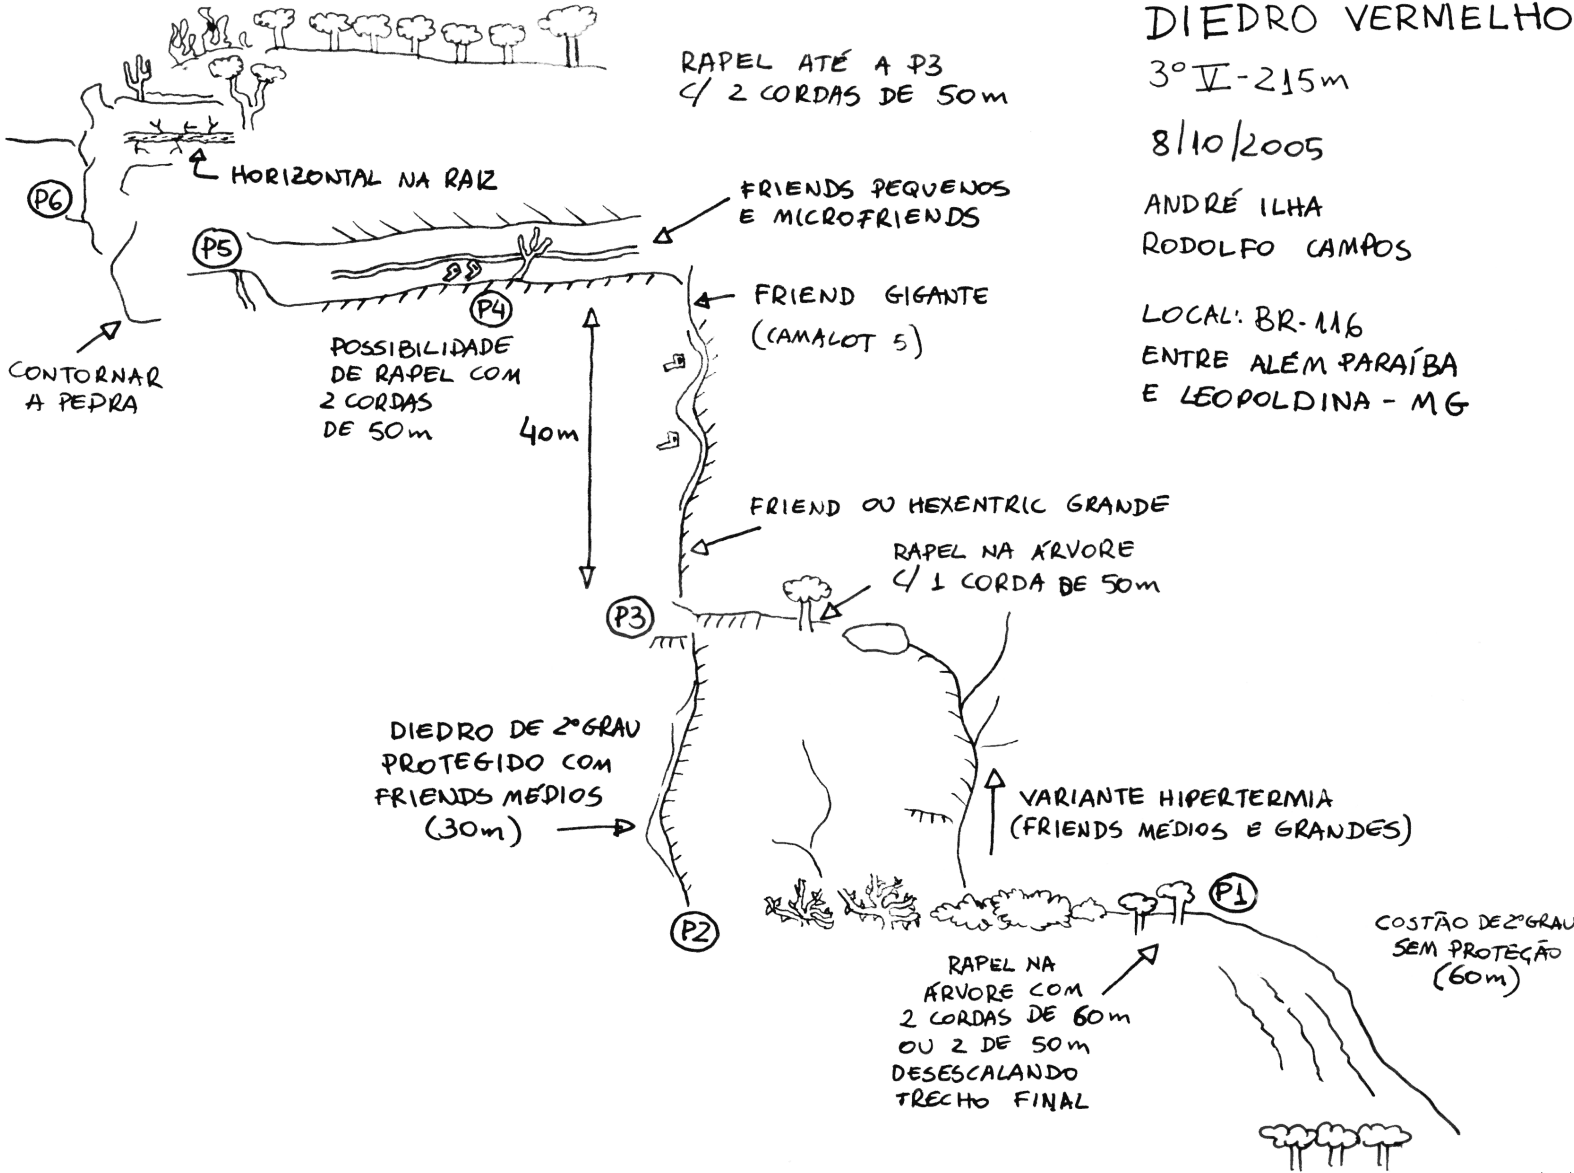 DIEDRO VERMELHO
3º V - 215m
8/10/2005
ANDRÉ ILHA
RODOLFO CAMPOS
LOCAL: BR-116
ENTRE ALÉM PARAÍBA
E LEOPOLDINA - MG
RAPEL ATÉ A P3
C/ 2 CORDAS DE 50m
HORIZONTAL NA RAIZ
P6
P5
FRIENDS PEQUENOS
E MICROFRIENDS
P4
FRIEND GIGANTE
(CAMALOT 5)
CONTORNAR
A PEDRA
POSSIBILIDADE
DE RAPEL COM
2 CORDAS
DE 50m
40m
FRIEND OU HEXENTRIC GRANDE
RAPEL NA ÁRVORE
C/ 1 CORDA DE 50m
P3
DIEDRO DE 2º GRAU
PROTEGIDO COM
FRIENDS MÉDIOS
(30m)
VARIANTE HIPERTERMIA
(FRIENDS MÉDIOS E GRANDES)
P2
P1
COSTÃO DE 2º GRAU
SEM PROTEÇÃO
(60m)
RAPEL NA
ÁRVORE COM
2 CORDAS DE 60m
OU 2 DE 50m
DESESCALANDO
TRECHO FINAL